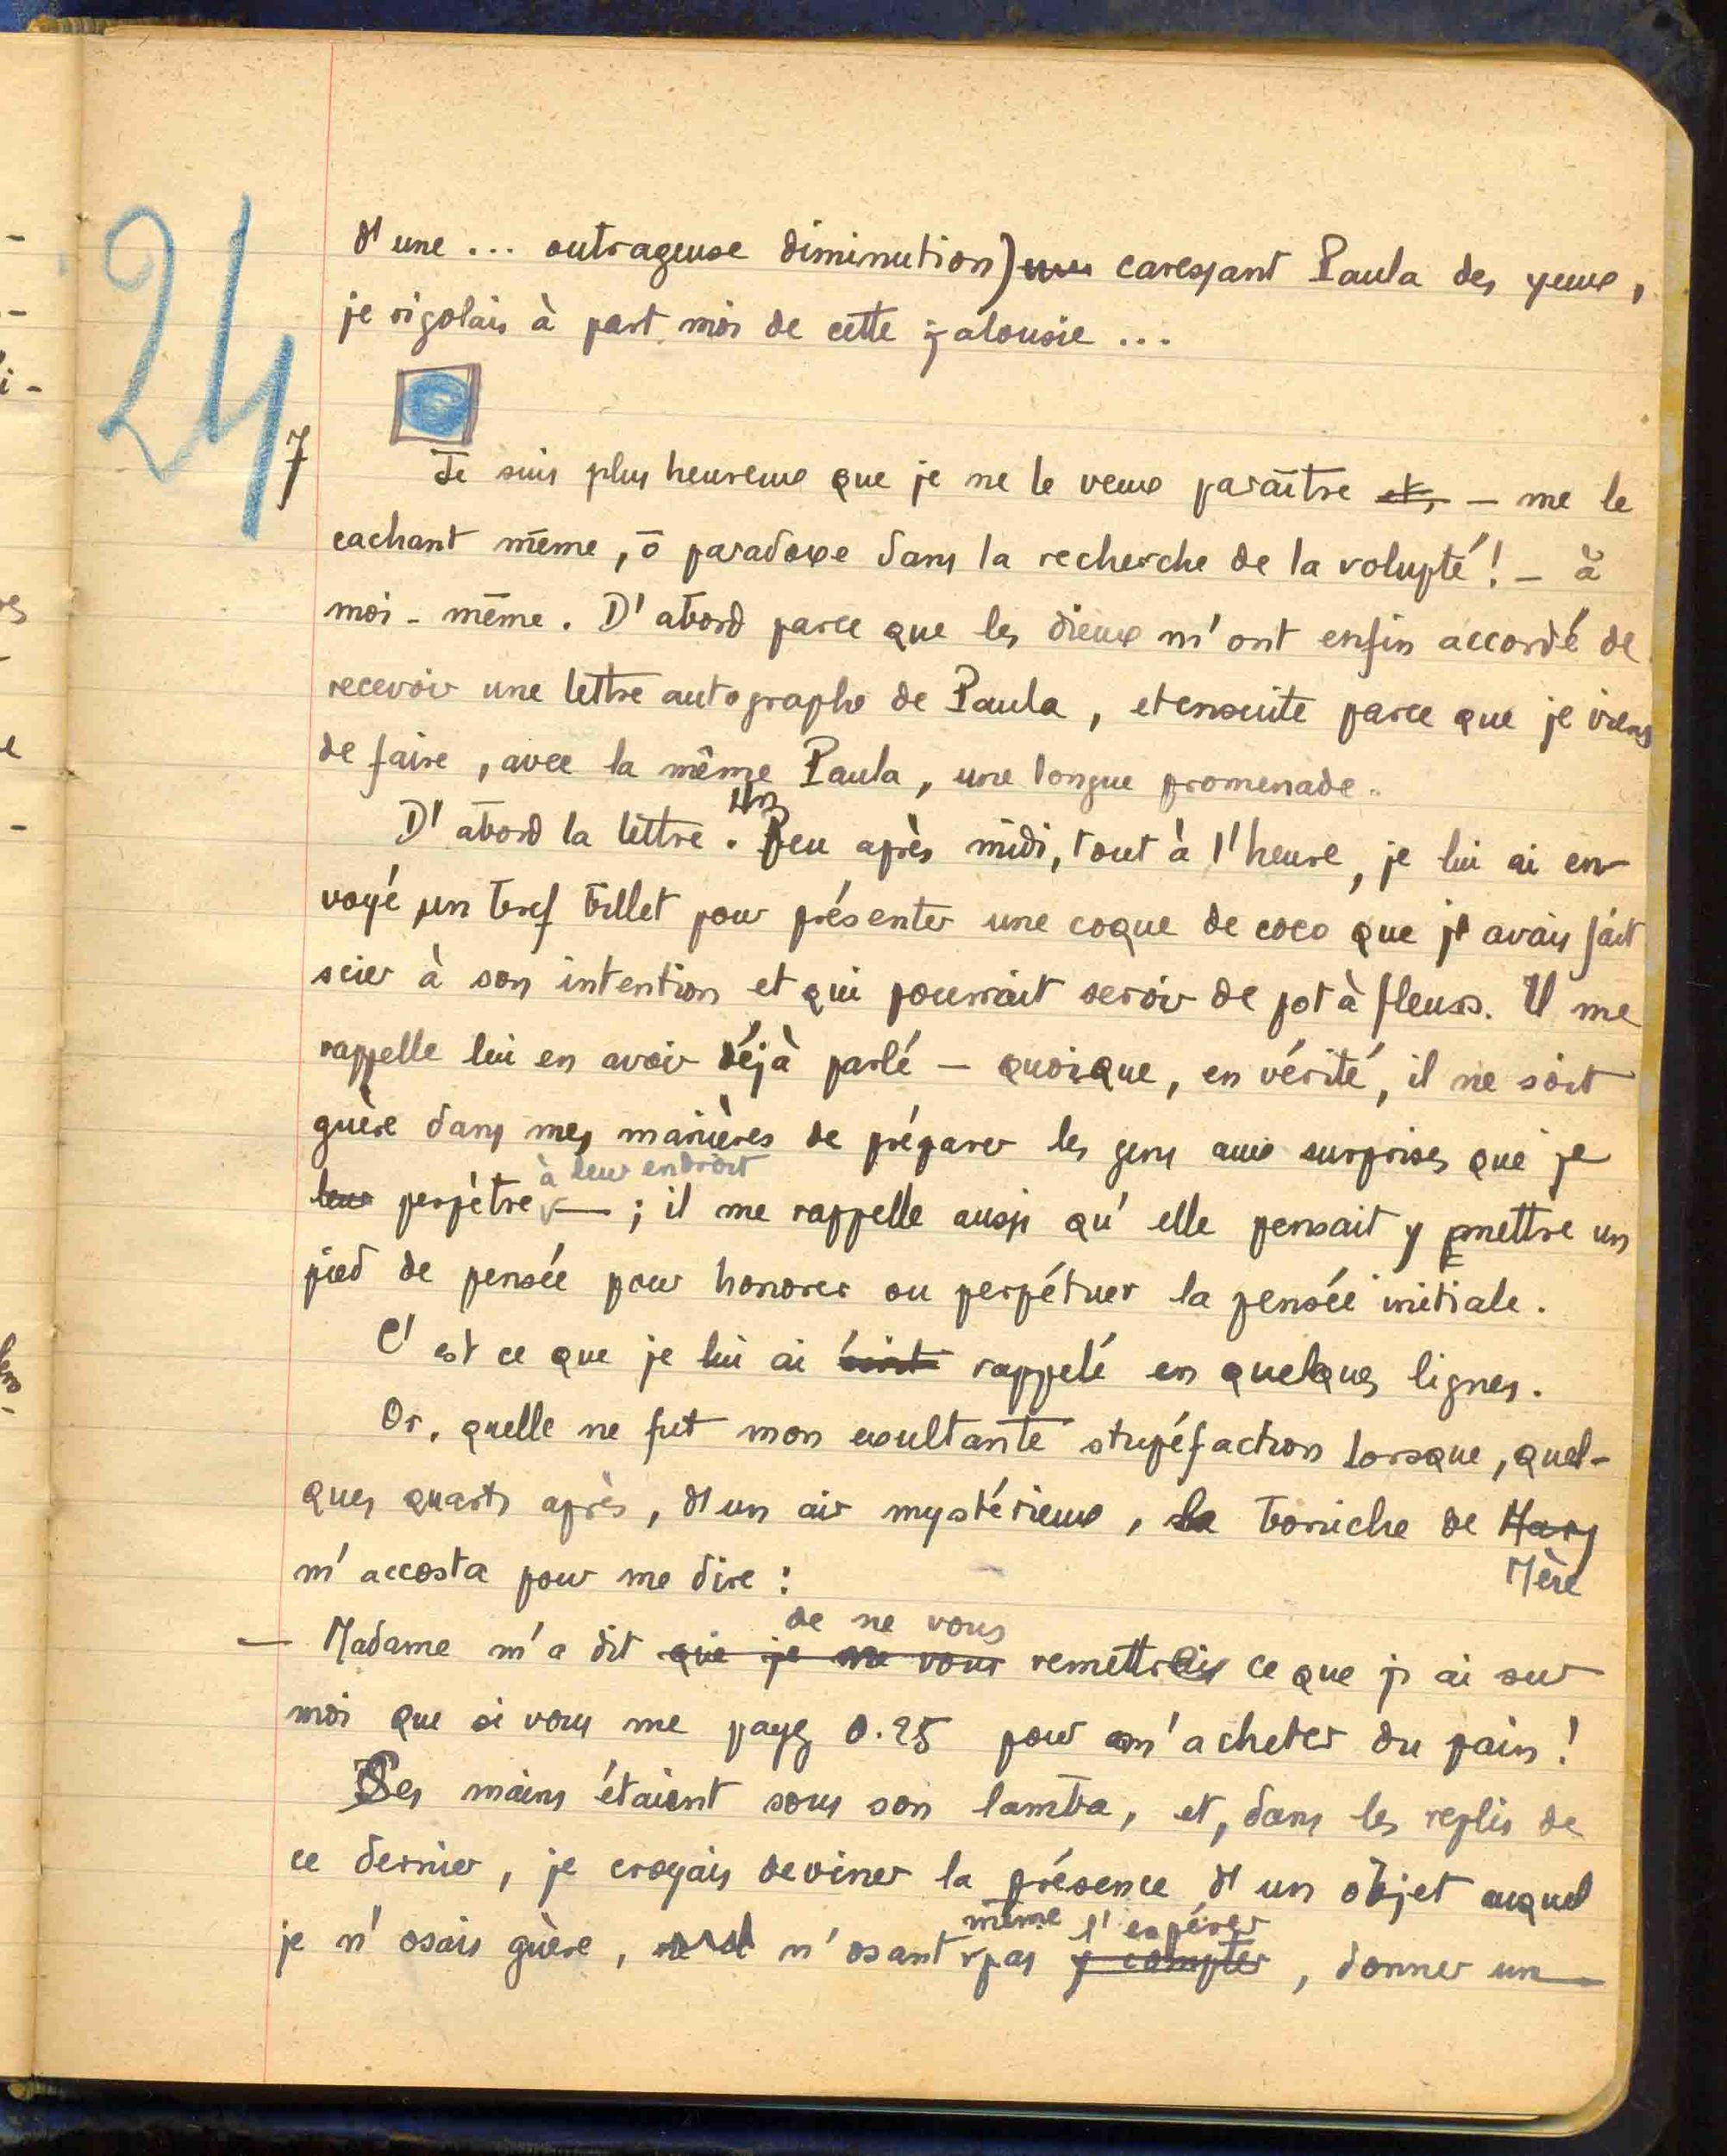 24
d'une ... outrageuse diminution) caressant Paula des yeux,
je rigolais à part moi de cette jalousie ...
7
Je suis plus heureux que je ne le veux paraître et, — me le
cachant même, ô paradoxe dans la recherche de la volupté! — à
moi-même. D'abord parce que les dieux m'ont enfin accordé de
recevoir une lettre autographe de Paula, et ensuite parce que je viens
de faire, avec la même Paula, une longue promenade.
Un
D'abord la lettre. Peu après midi, tout à l'heure, je lui ai en-
voyé un bref billet pour présenter une coque de coco que j'avais fait
scier à son intention et qui pourrait servir de pot à fleurs. Il me
rappelle lui en avoir déjà parlé — quoique, en vérité, il ne soit
guère dans mes manières de préparer les gens aux surprises que je
à leur endroit
leur perpètre — ; il me rappelle aussi qu'elle pensait y mettre un
pied de pensée pour honorer ou perpétuer la pensée initiale.
C'est ce que je lui ai écrit rappelé en quelques lignes.
Or, quelle ne fut mon exultante stupéfaction lorsque, quel-
ques quarts après, d'un air mystérieux, la boniche de Hary
Mère
m'accosta pour me dire :
de ne vous
— Madame m'a dit que je ne vous remettrais ce que j'ai sur
moi que si vous me payez 0.25 pour m'acheter du pain!
Ses mains étaient sous son lamba, et, dans les replis de
ce dernier, je croyais deviner la présence d'un objet auquel
même l'espérer
je n'osais guère, n'osant pas y compter, donner un